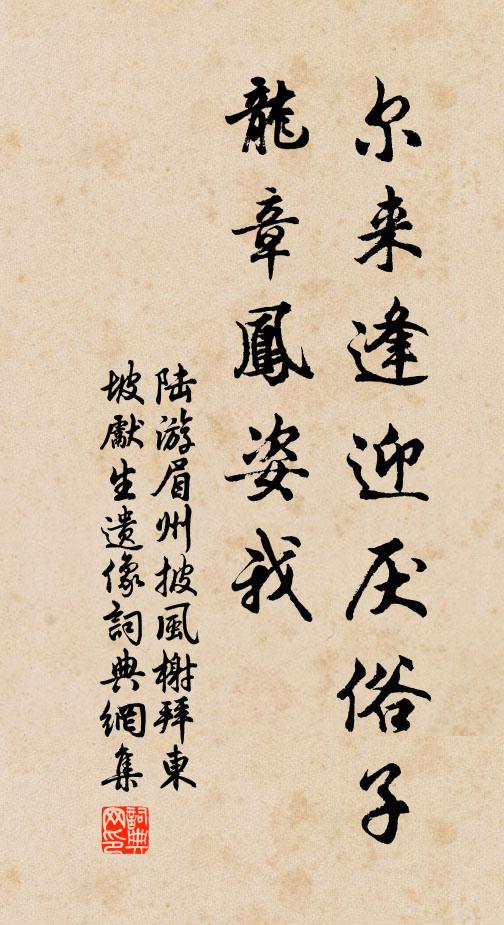 尔来逢迎厌俗子
龍章鳳姿我
陆游眉州披風榭拜東
坡先生遺像詞典網集
詞典网印